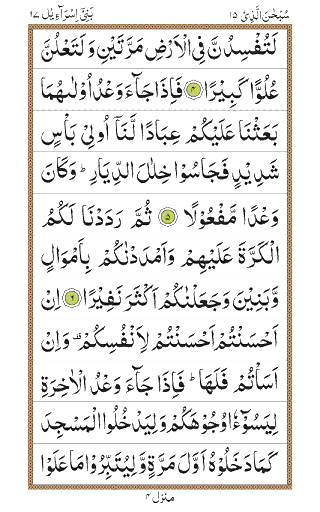 سُبْحٰنَ الَّذِيْٓ ١٥ بَنِيْٓ اِسْرَآءِيْل ١٧
لَتُفْسِدُنَّ فِي الْاَرْضِ مَرَّتَيْنِ وَلَتَعْلُنَّ
عُلُوًّا كَبِيْرًا ۴ فَاِذَا جَآءَ وَعْدُ اُوْلٰىهُمَا
بَعَثْنَا عَلَيْكُمْ عِبَادًا لَّنَآ اُولِيْ بَاْسٍ
شَدِيْدٍ فَجَاسُوْا خِلٰلَ الدِّيَارِ ؕ وَكَانَ
وَعْدًا مَّفْعُوْلًا ۵ ثُمَّ رَدَدْنَا لَكُمُ
الْكَرَّةَ عَلَيْهِمْ وَاَمْدَدْنٰكُمْ بِاَمْوَالٍ
وَّبَنِيْنَ وَجَعَلْنٰكُمْ اَكْثَرَ نَفِيْرًا ۶ اِنْ
اَحْسَنْتُمْ اَحْسَنْتُمْ لِاَنْفُسِكُمْ ۫ وَاِنْ
اَسَاْتُمْ فَلَهَا ؕ فَاِذَا جَآءَ وَعْدُ الْاٰخِرَةِ
لِيَسُوْٓءٗا وُجُوْهَكُمْ وَلِيَدْخُلُوا الْمَسْجِدَ
كَمَا دَخَلُوْهُ اَوَّلَ مَرَّةٍ وَّلِيُتَبِّرُوْا مَا عَلَوْا
منزل ۴